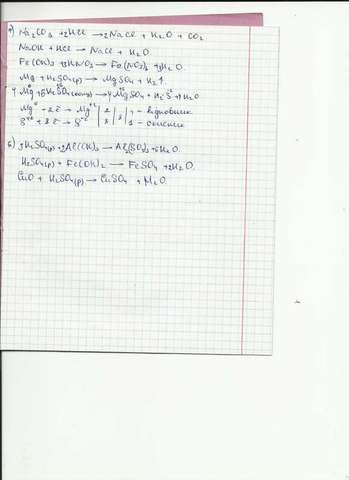 Na₂CO₃ + 2HCl → 2NaCl + H₂O + CO₂
NaOH + HCl → NaCl + H₂O.
Fe(OH)₃ + 3HNO₃ → Fe(NO₃)₃ + 3H₂O.
Mg + H₂SO₄(р) → MgSO₄ + H₂↑.
4Mg⁰ + 5H₂S⁺⁶O₄(конц) → 4Mg⁺²SO₄ + H₂S⁻² + 4H₂O
Mg⁰ - 2ē → Mg⁺² | 2 | 4 - відновник
S⁺⁶ + 8ē → S⁻² | 8 | 1 - окисник
б) 3H₂SO₄(р) + 2Al(OH)₃ → Al₂(SO₄)₃ + 6H₂O.
H₂SO₄(р) + Fe(OH)₂ → FeSO₄ + 2H₂O.
CuO + H₂SO₄(р) → CuSO₄ + H₂O.